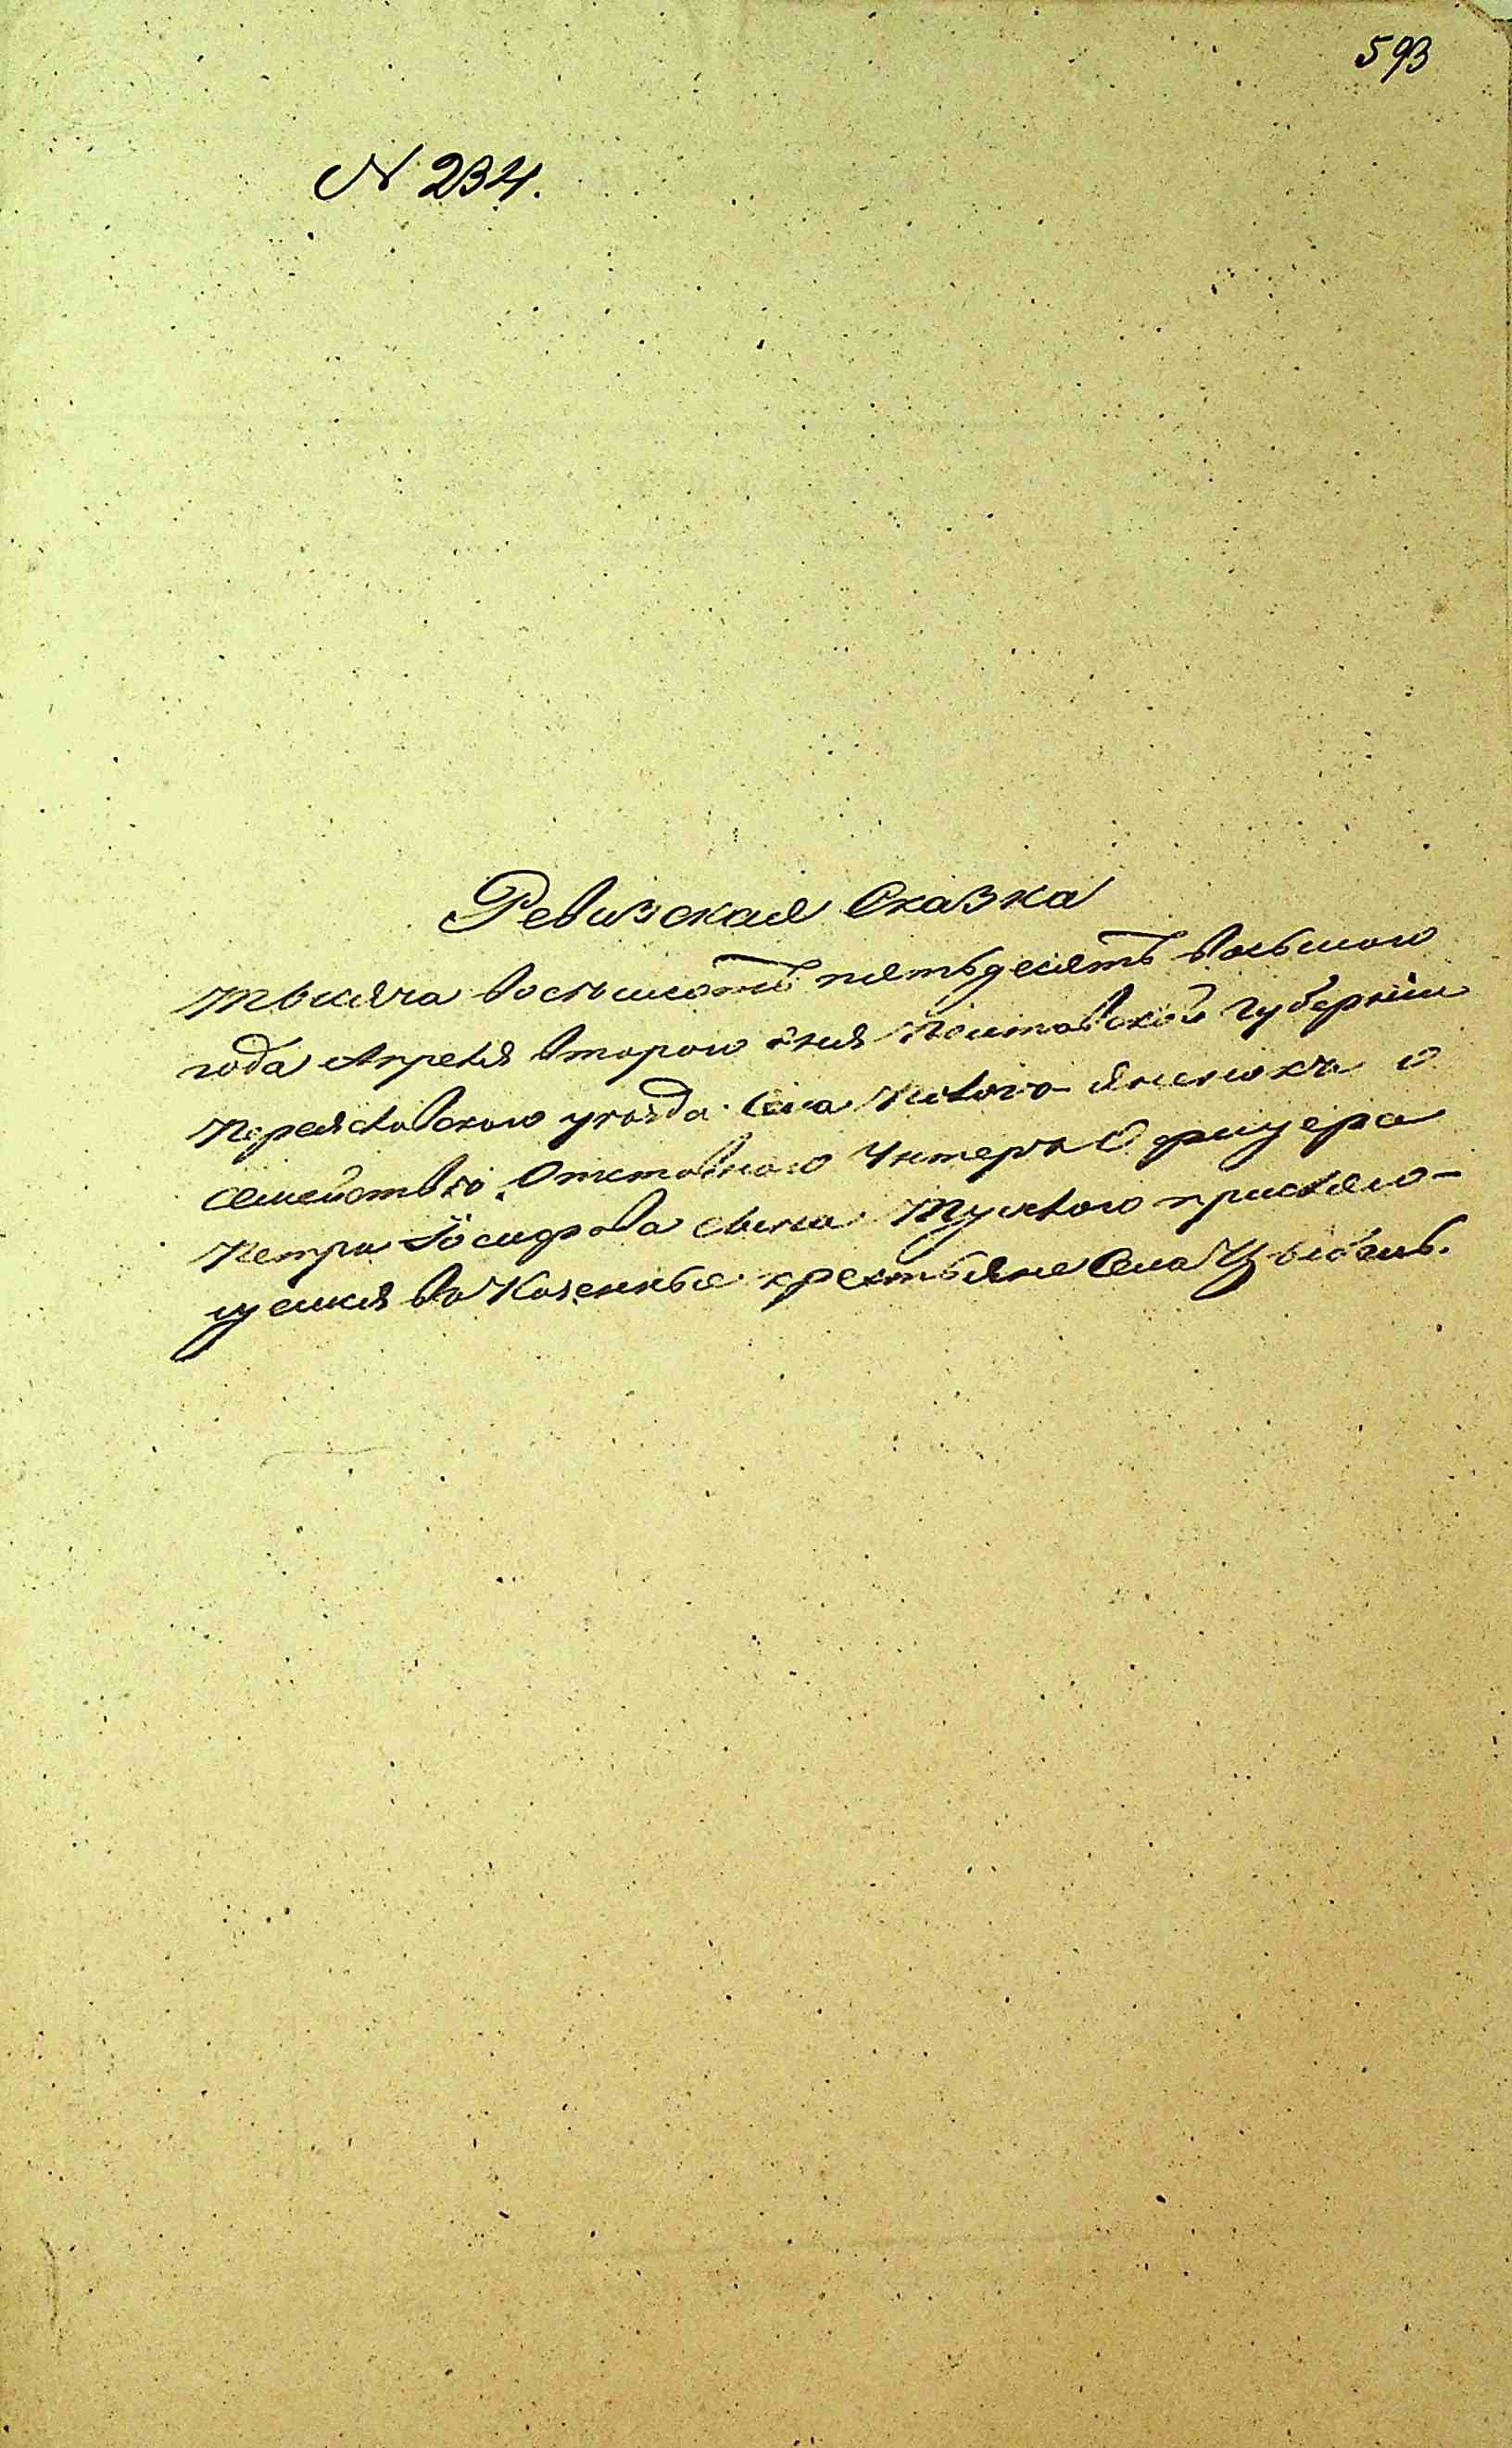 593
N 234.
Ревизская Сказка
тысяча восемьсотъ пятьдесятъ восьмого
года Апреля второго дня Полтавской Губерніи
Переяславского уѣзда Села
семействѣ Отставного Унтеръ Офицера
Петра сына причисляю-
щемся въ Казенные крестьяне Села Цыбель.